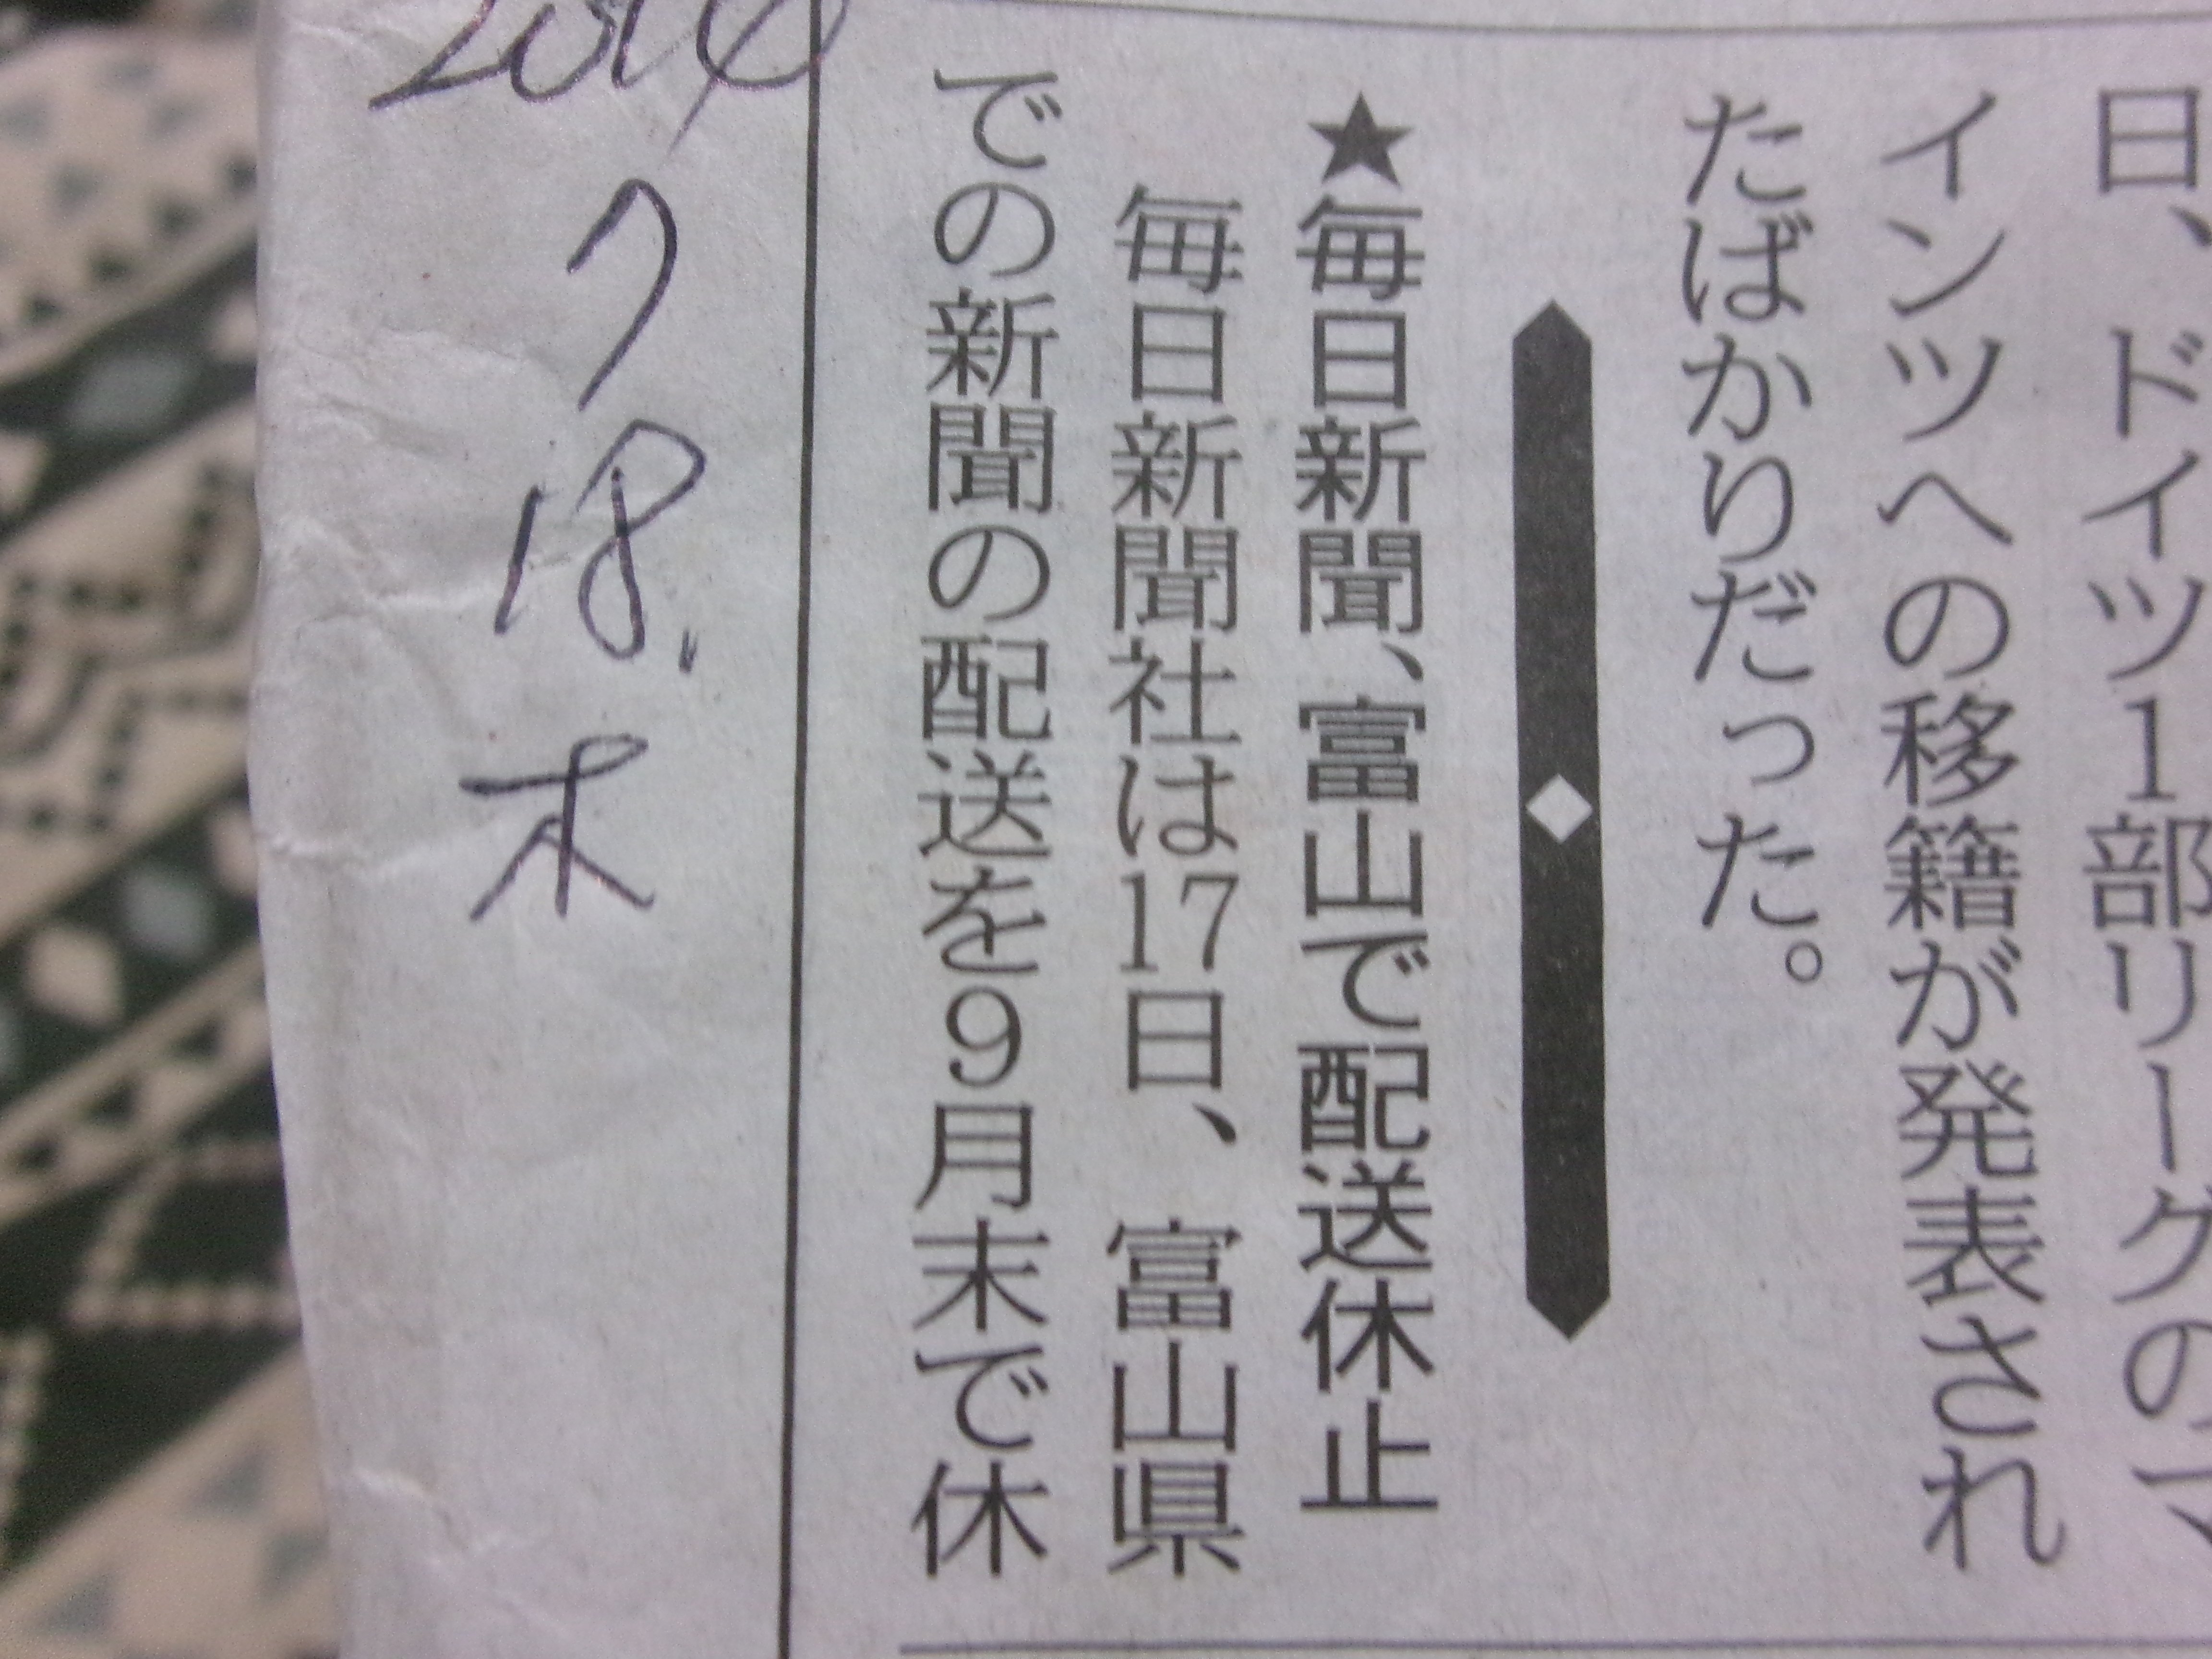 日、ドイツ1部リーグのマ
インツへの移籍が発表され
たばかりだった。
★毎日新聞、富山で配送休止
毎日新聞社は17日、富山県
での新聞の配送を9月末で休
7
18.
木